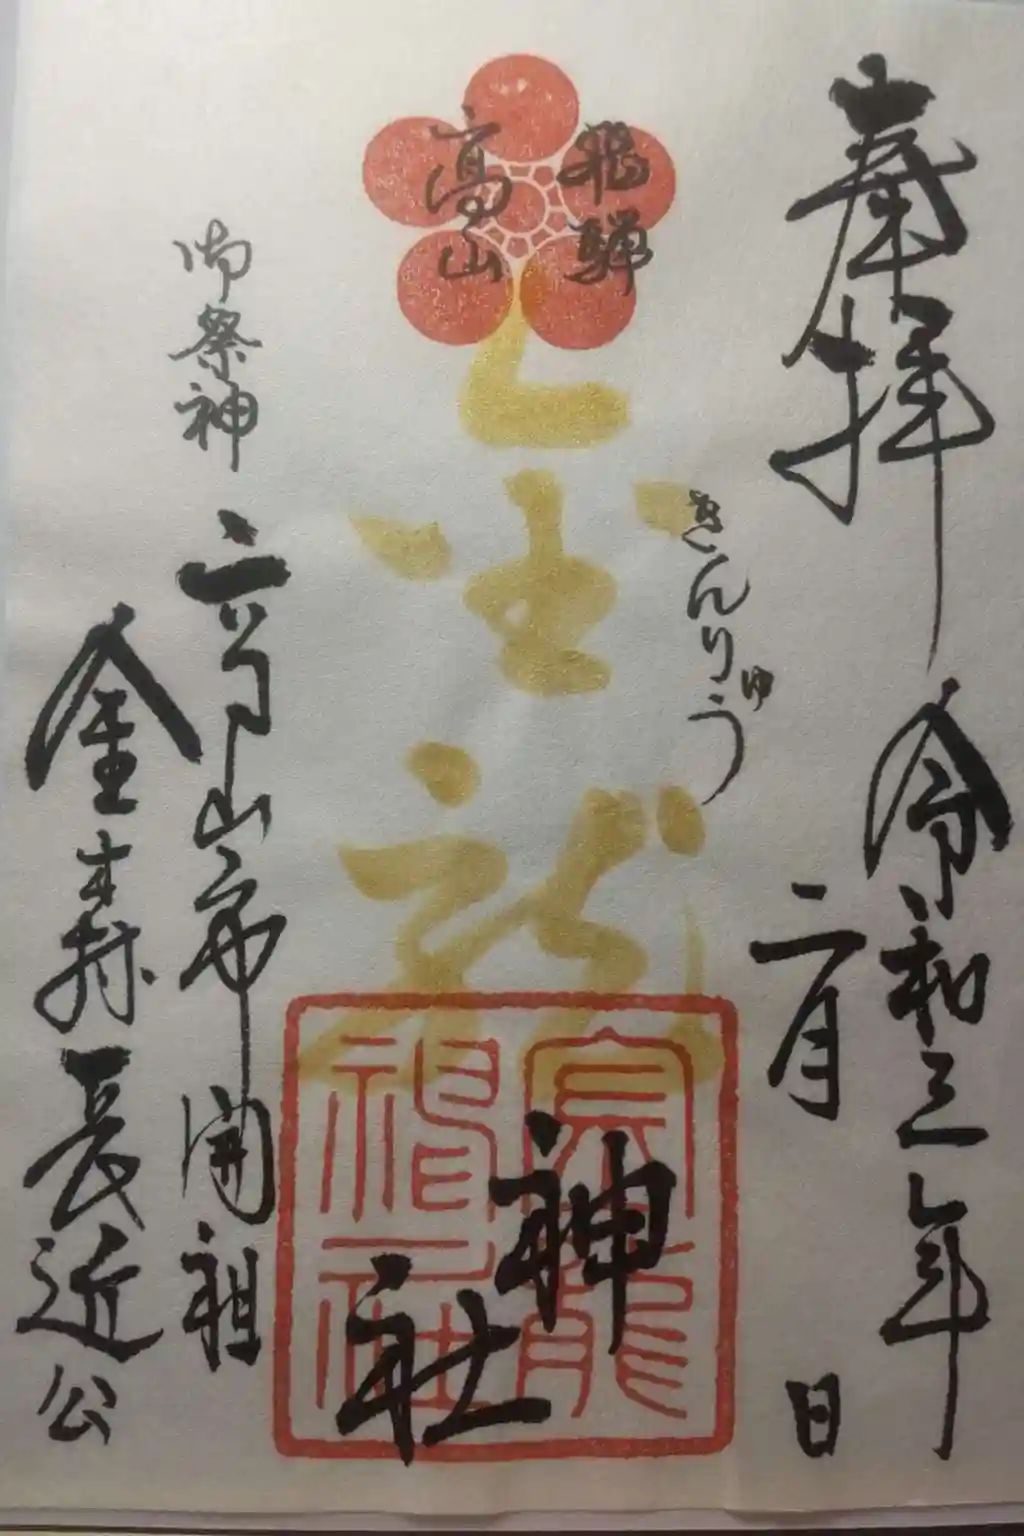 奉拝
令和三年
二月 日
飛騨
高山
きんりゅう
金龍
神社
御祭神
高山市開祖
金森長近公
金龍神社